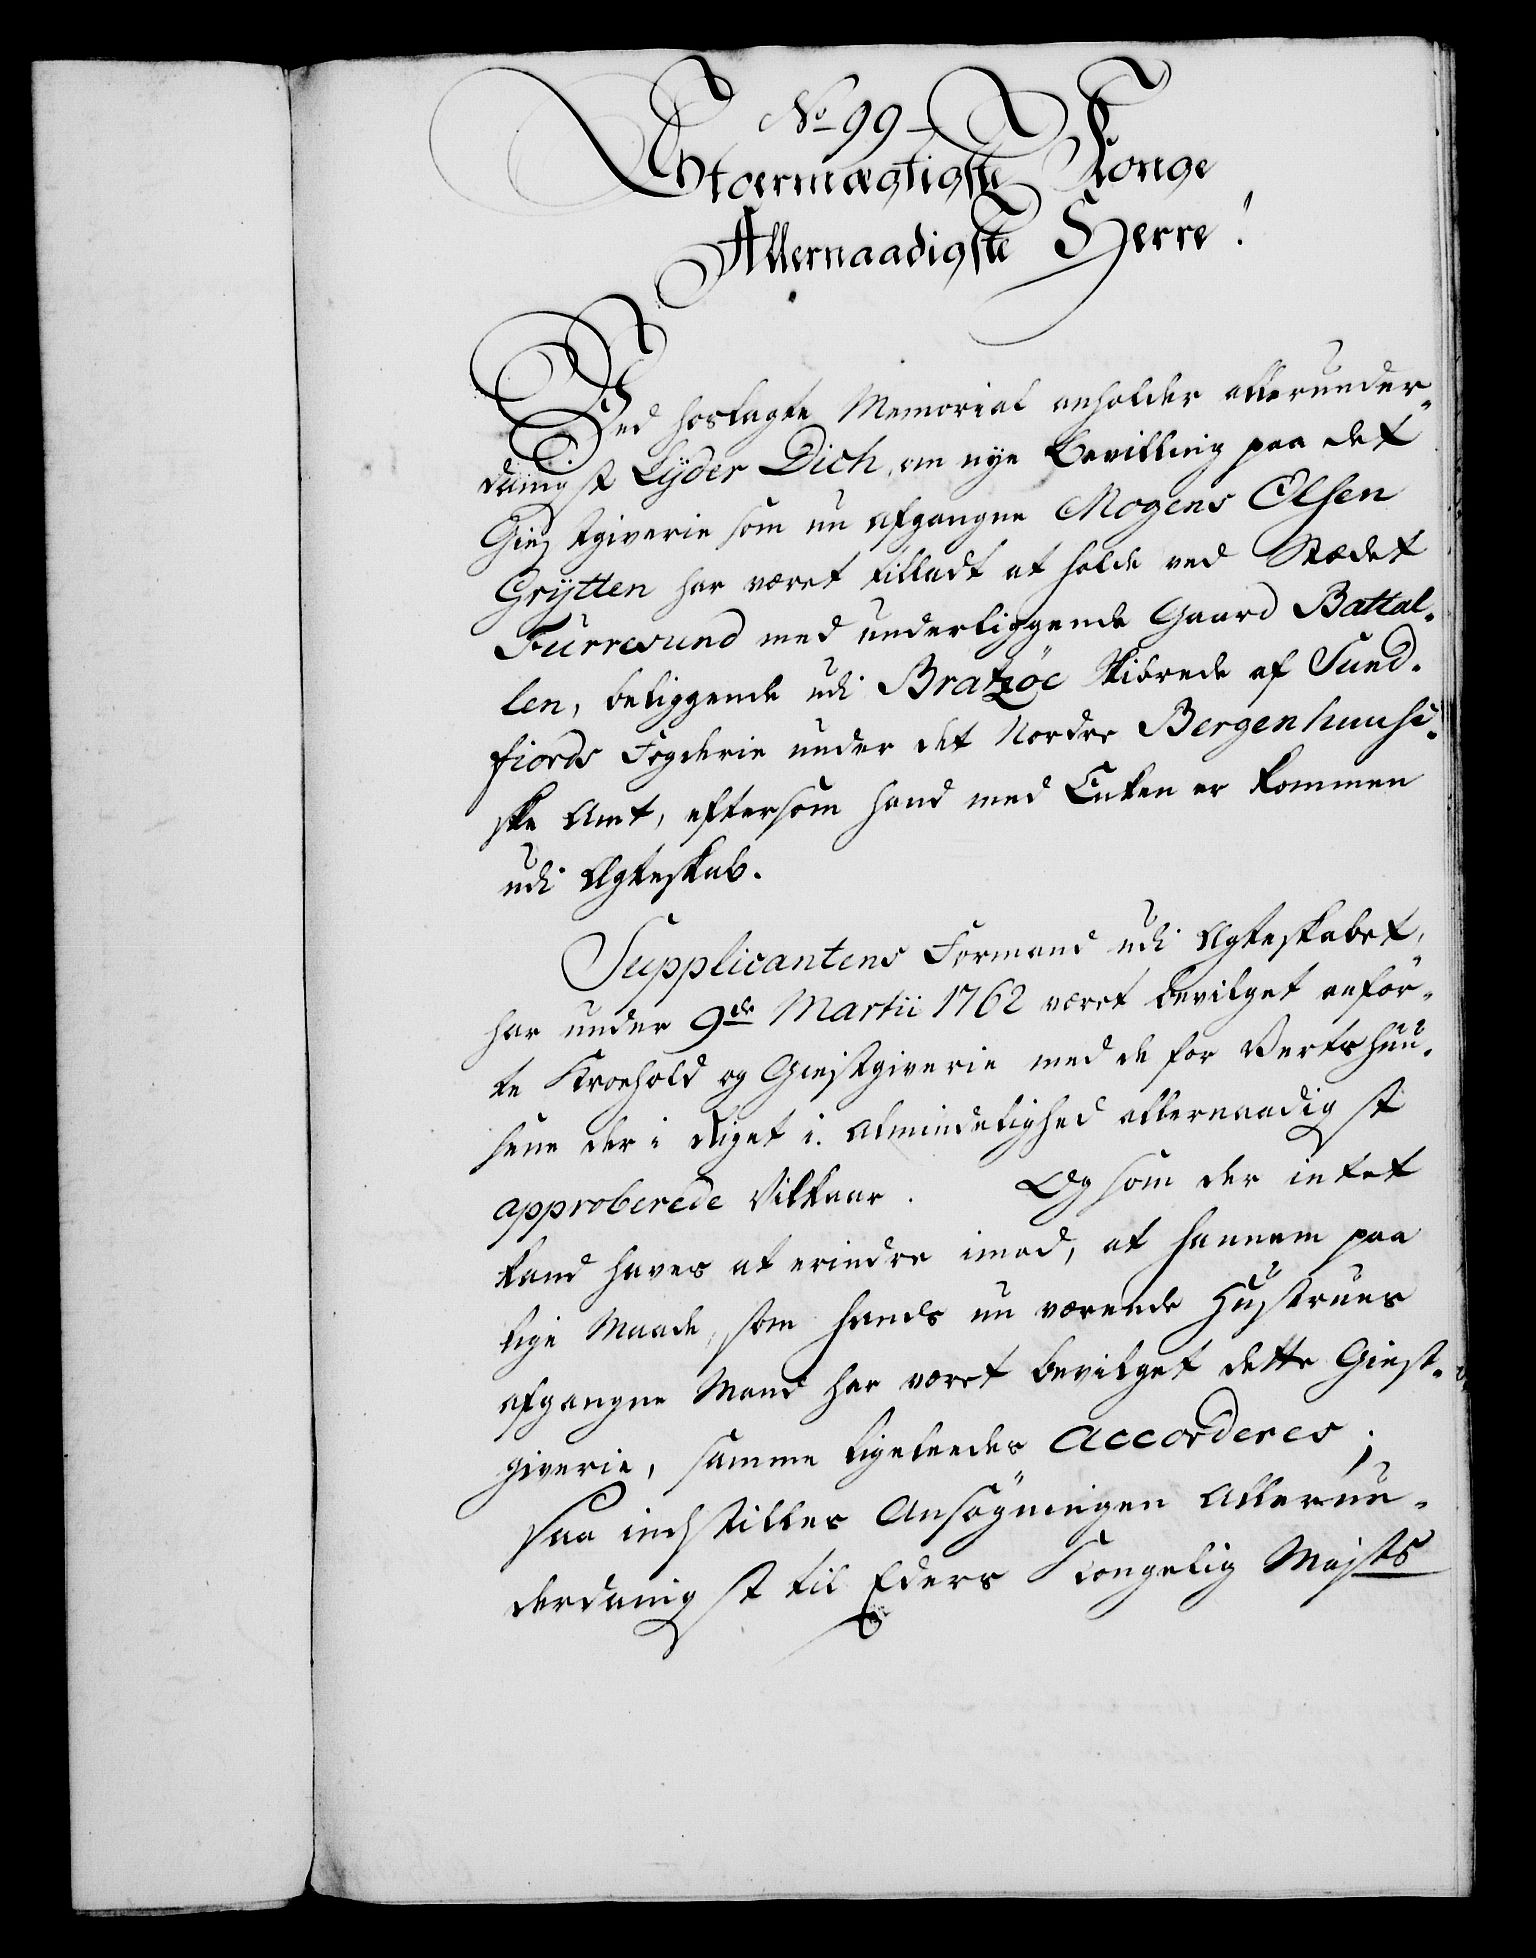 No 99
Stormægtigste Konge
Allernaadigste Herre!
Ved hoslagte Memorial anholder allerunder-
danigst Lyder Dich, om nye Bevilling paa det
Giestgiverie som nu afgangne Mogens Olsen
Grytten har været tilladt at holde ved Stædet
Furresund med underliggende Gaard Battal-
len, beliggende udi Bratzöe Skibrede af Sund-
fiords Fogderie under det Nordre Bergenhuusi-
ske Amt, eftersom hand med Enken er kommen
udi Ægteskab.
Supplicantens Formand udi Ægteskabet,
har under 9de Martii 1762 været bevilget anför-
te Kroehold og Giestgiverie med de for Vertshuu-
sene der i Riget i Almindelighed allernaadigst
approberede Vilkaar. Og som der intet
kand haves at erindre imod, at hannem paa
lige Maade, som hands nu værende Hustrues
afgangne Mand har været bevilget dette Giest-
giverie, samme ligeleedes accorderes;
Saa indstilles Ansögningen allerun-
derdanigst til Eders Kongelig Majsts